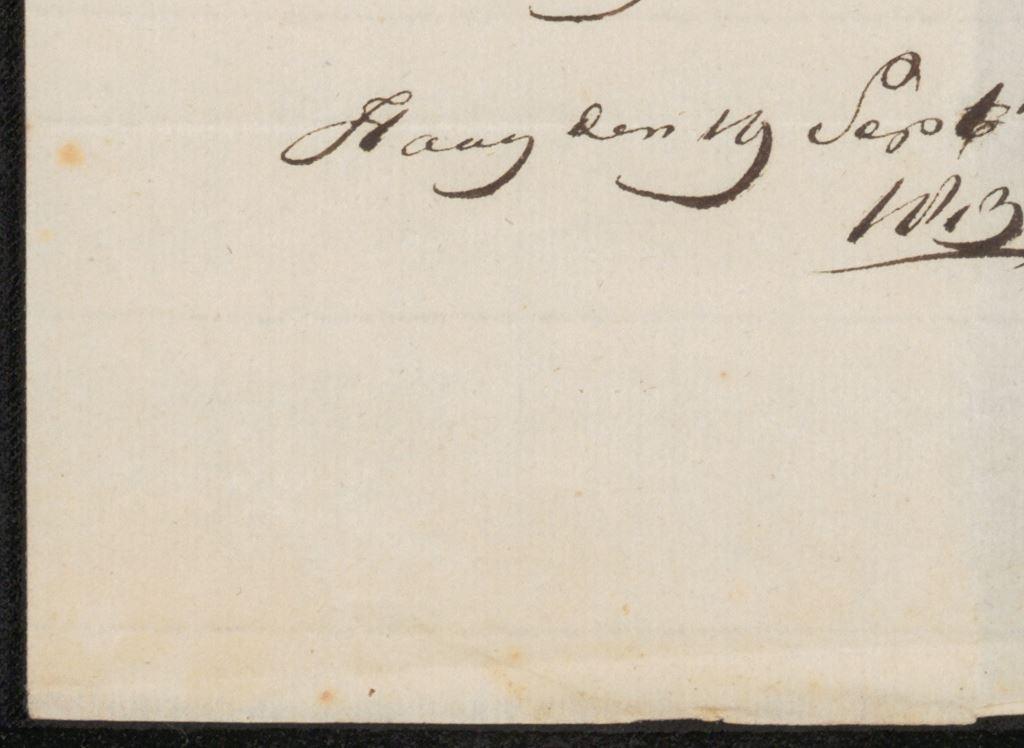 Haag den 19 Septr
1813